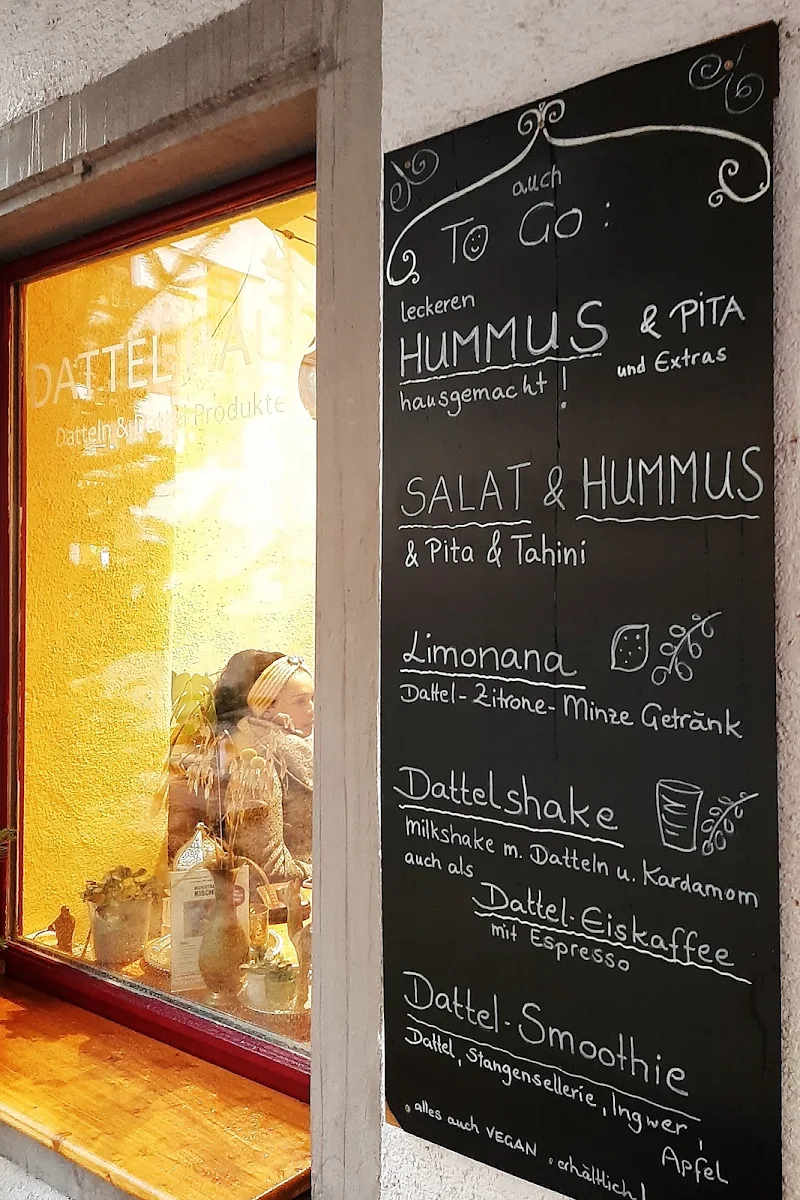 DATTEL
Datteln & Dattel Produkte
auch
TO GO :
leckeren
HUMMUS & PITA
hausgemacht ! und Extras
SALAT & HUMMUS
& Pita & Tahini
Limonana
Dattel-Zitrone-Minze Getränk
Dattelshake
milkshake m. Datteln u. Kardamom
auch als
Dattel-Eiskaffee
mit Espresso
Dattel-Smoothie
Dattel, Stangensellerie, Ingwer,
Apfel
alles auch VEGAN erhältlich!